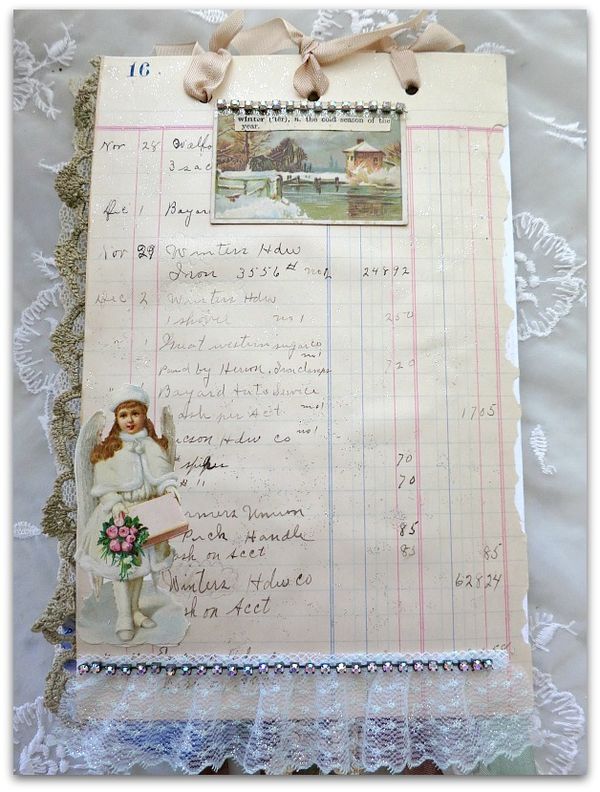 16
winter ('tẽr), n. the cold season of the
year.
Nov 28 Walfo
3 sac
Dec 1 Bayard
Nov 29 Winters Hdw
Iron 3556# no2 24892
Dec 2 Winters Hdw
1 shovel no1 250
" 1 Great western sugar co
no1
Paid by Heron. Iron clamps 720
" 1 Bayard Auto Service
ash per Acct no1 1705
ucson Hdw co no1
spikes 70
# 11 70
rmers Union
Puck Handle 85
ash on Acct 85 85
Winters Hdw co 62824
sh on Acct